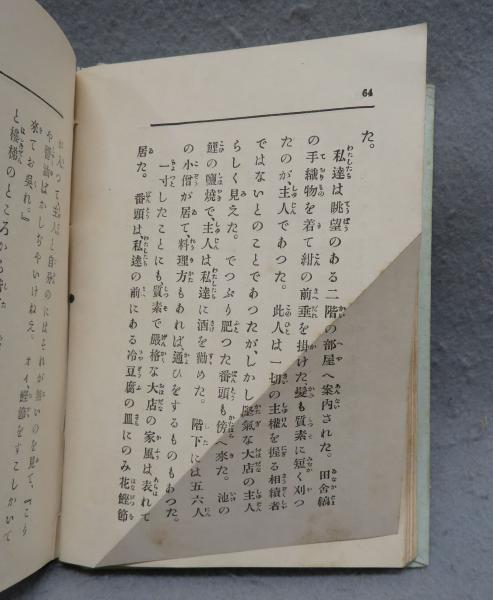 64
た。
私達は眺望のある二階の部屋へ案内された。田舎縞
の手織物を着て紺の前垂を掛けた髮も質素に短く刈つ
たのが主人であつた。此人は一切の主權を握る相續者
ではないとのことであつたが、しかし堅氣な大店の主人
らしく見えた。でつぷり肥つた番頭も傍へ來た。池の
鯉の鹽燒で、主人は私達に酒を勸めた。階下には五六人
の小僧が居て、料理方もあれば、通ひをするものもあつた。
一寸したことにも質素で嚴格な大店の家風は表れて
居た。番頭は、私達の前にある冷豆腐の皿にのみ花鰹節
入つて主人と自分のにはそれが無いのを見て、『こり
や醬油ばかしぢやいけねえ。オイ、鰹節をすこしかいて
來てお呉れ。』
と樓梯のところから階下